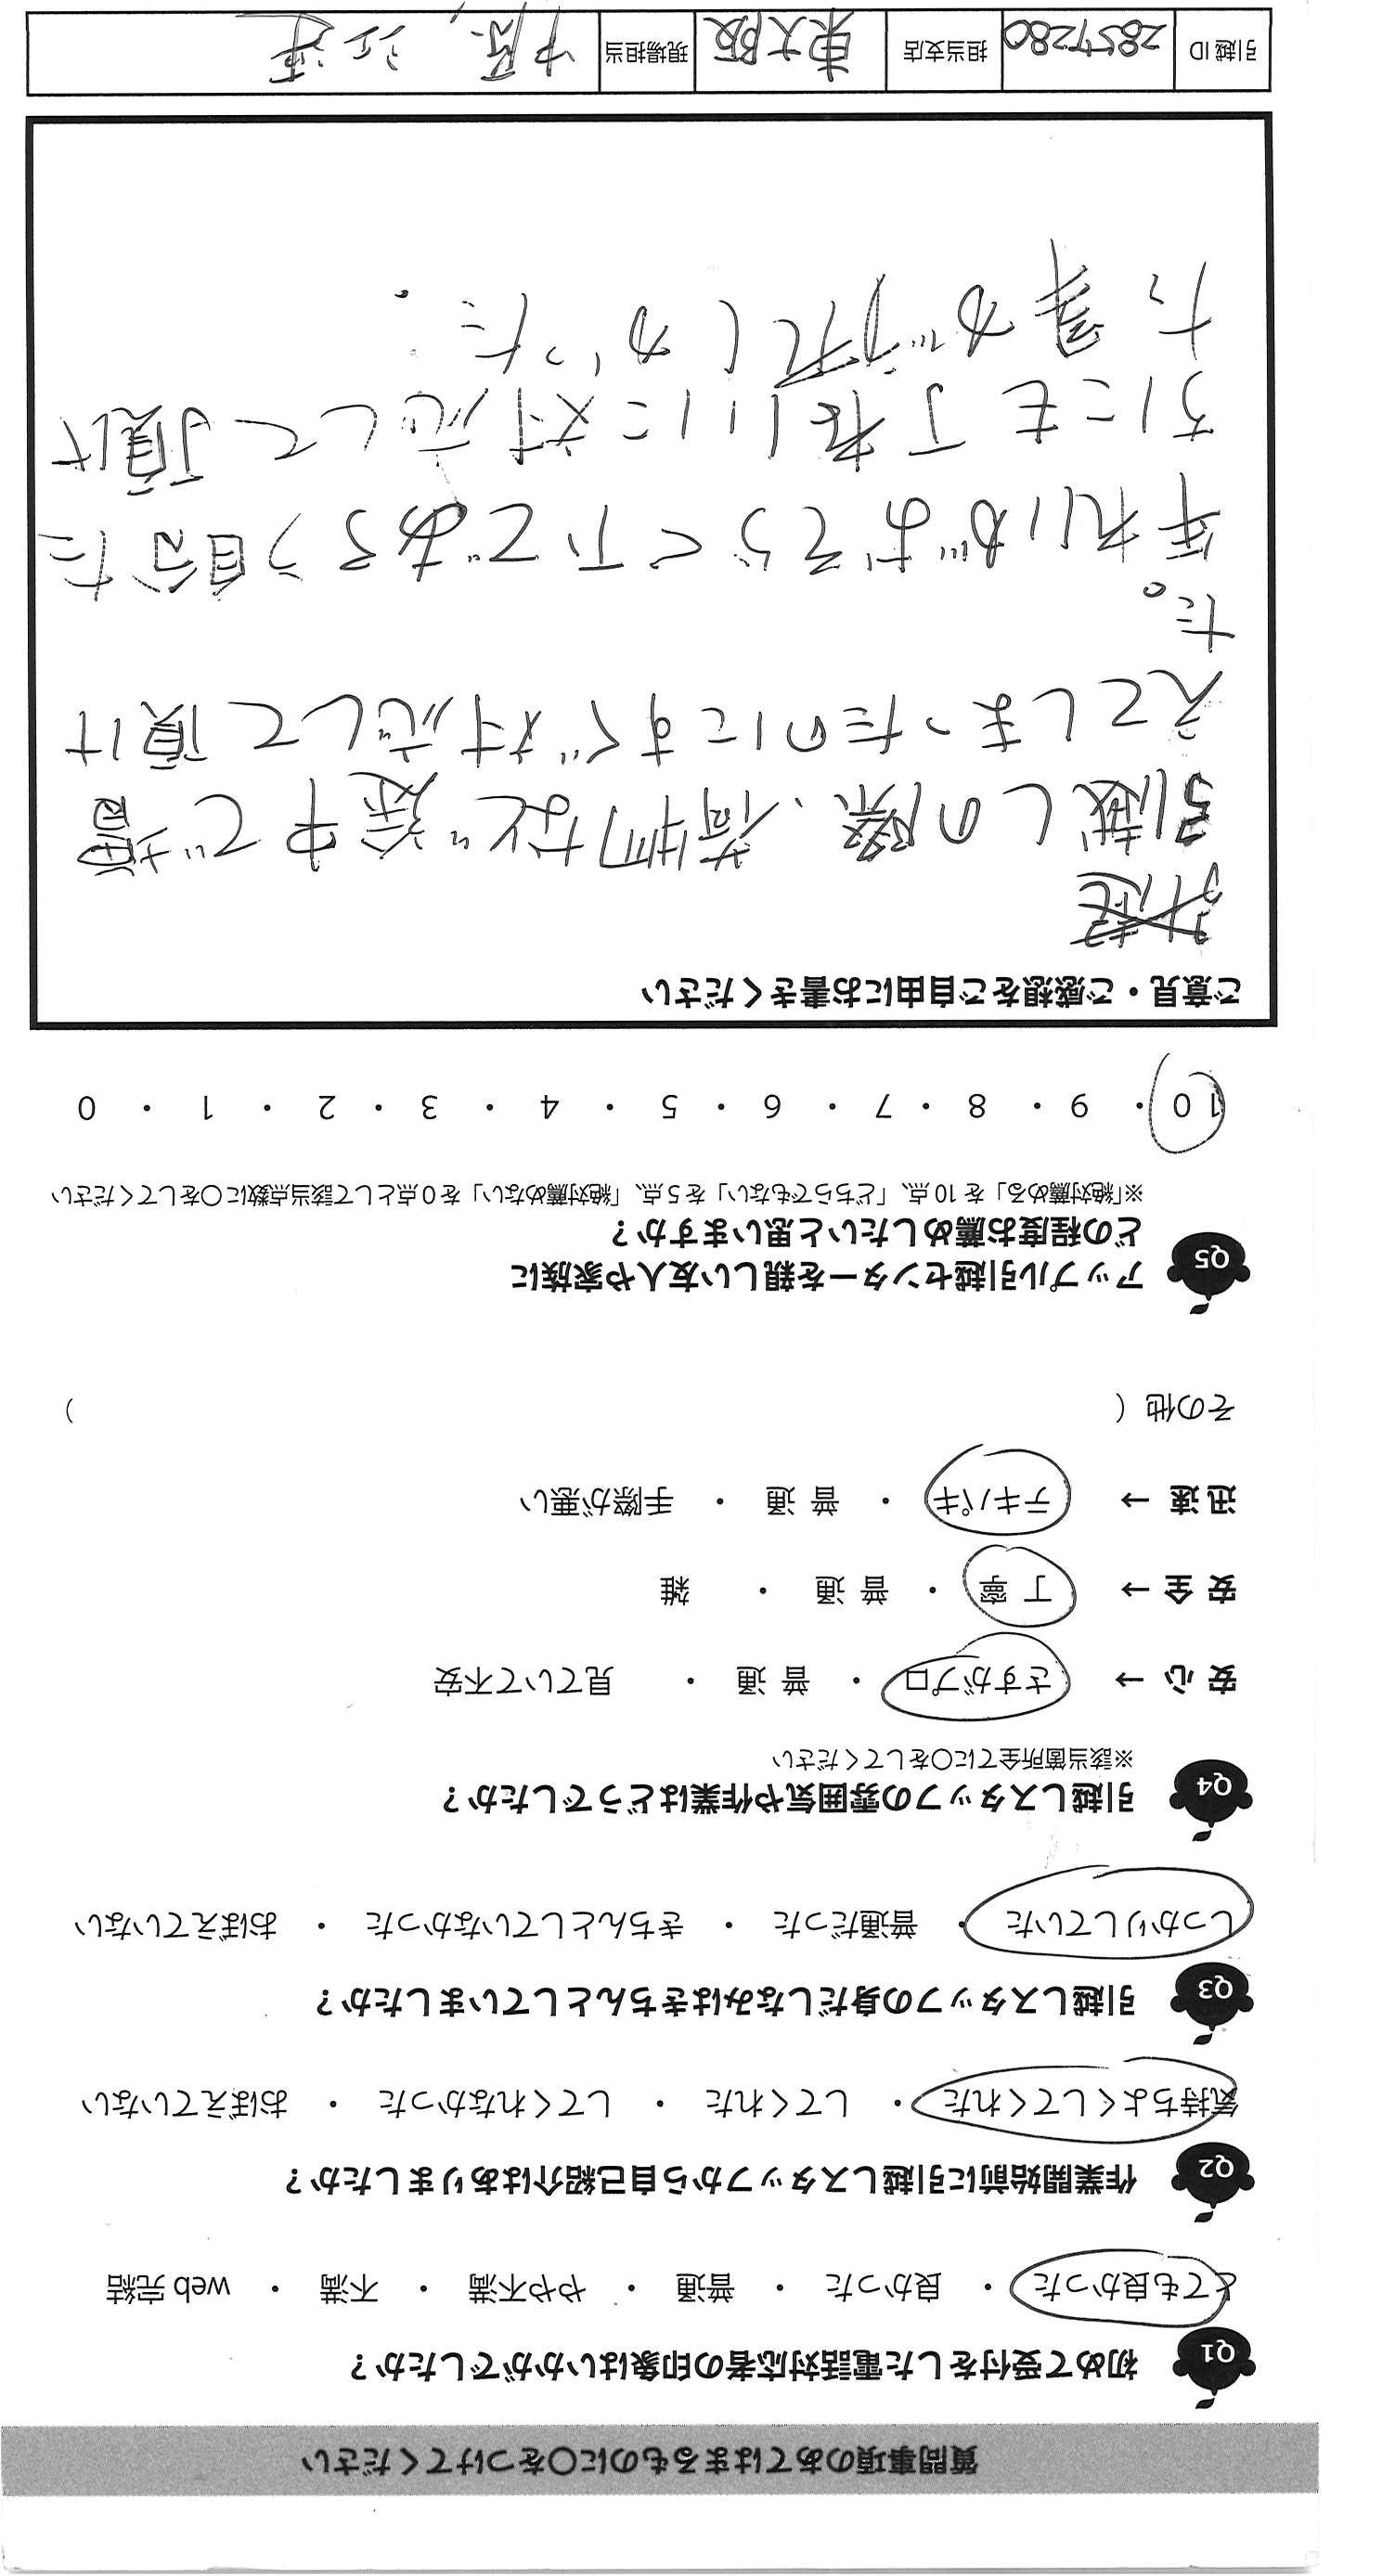 質問事項のあてはまるものに○をつけてください
Q1 初めて受付をした電話対応者の印象はいかがでしたか?
とても良かった ・ 良かった ・ 普通 ・ やや不満 ・ 不満 ・ web 完結
Q2 作業開始前に引越しスタッフから自己紹介はありましたか?
気持ちよくしてくれた ・ してくれた ・ してくれなかった ・ おぼえていない
Q3 引越しスタッフの身だしなみはきちんとしていましたか?
しっかりしていた ・ 普通だった ・ きちんとしていなかった ・ おぼえていない
Q4 引越しスタッフの雰囲気や作業はどうでしたか?
※該当箇所全てに○をしてください
安心 → さすがプロ ・ 普通 ・ 見ていて不安
安全 → 丁寧 ・ 普通 ・ 雑
迅速 → テキパキ ・ 普通 ・ 手際が悪い
その他 ( )
Q5 アップル引越センターを親しい友人や家族に
どの程度お薦めしたいと思いますか?
※「絶対薦める」を 10 点、「どちらでもない」を 5 点、「絶対薦めない」を 0 点として該当点数に○をしてください
10 ・ 9 ・ 8 ・ 7 ・ 6 ・ 5 ・ 4 ・ 3 ・ 2 ・ 1 ・ 0
ご意見・ご感想をご自由にお書きください
引越しの際、荷物など途中で増
えてしまったのにすぐ対応して頂け
た。
年れいがおそらく下であろう自分た
ちにもていねいに対応して頂け
た事が嬉しかった.
引越 ID 2857280 担当支店 東大阪 現場担当 中原,